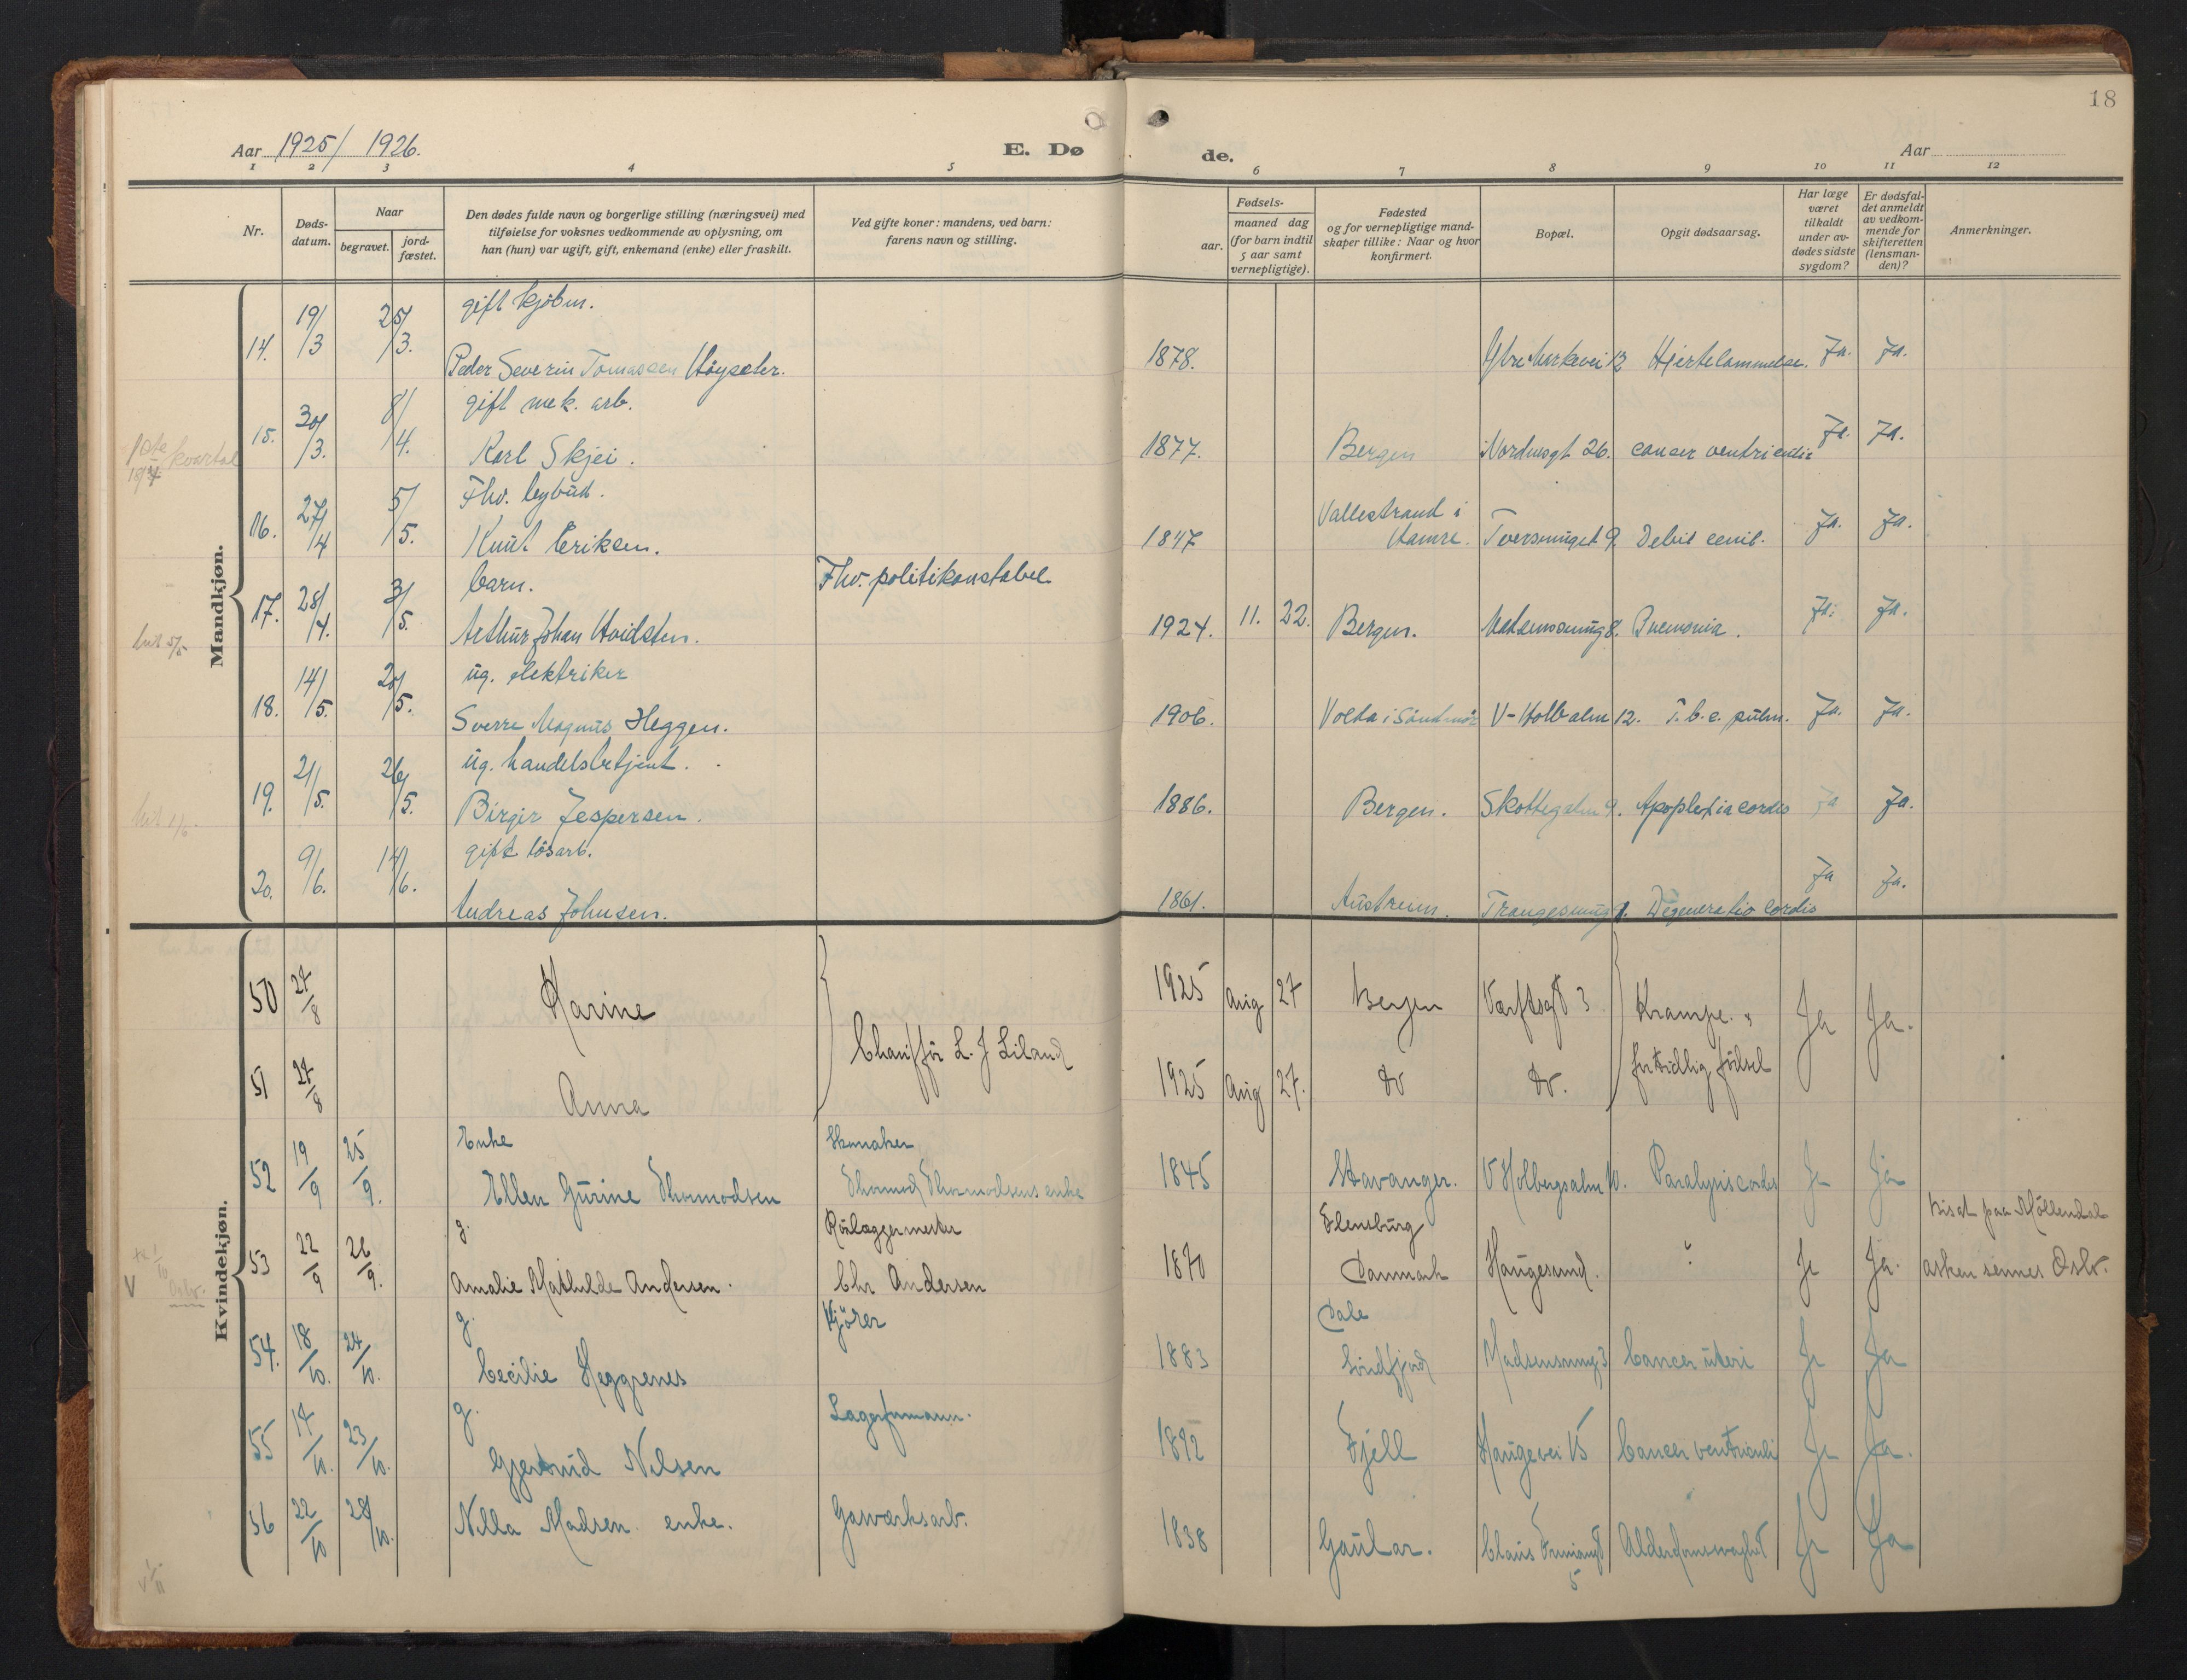 18
Aar 1925/ 1926.
E. Dø
de.
Aar
1 2 3 4 5 6 7 8 9 10 11 12
Nr.
Døds-
datum.
Naar
begravet.
jord-
fæstet.
Den dødes fulde navn og borgerlige stilling (næringsvei) med
tilføielse for voksnes vedkommende av oplysning, om
han (hun) var ugift, gift, enkemand (enke) eller fraskilt.
Ved gifte koner: mandens, ved barn:
farens navn og stilling.
Fødsels-
aar.
maaned dag
(for barn indtil
5 aar samt
vernepligtige).
Fødested
og for vernepligtige mand-
skaper tillike: Naar og hvor
konfirmert.
Bopæl.
Opgit dødsaarsag.
Har læge
været
tilkaldt
under av-
dødes sidste
sygdom?
Er dødsfal-
det anmeldt
av vedkom-
mende for
skifteretten
(lensman-
den)?
Anmerkninger.
Mandkjøn.
gift kjøbm.
14. 19/3 25/3. Peder Severin Tomassen Høysæter. 1878. Hjertelammelse. Ja. Ja.
gift mek. arb.
15. 30/3. 8/4. Karl Skjei. 1877. Bergen Nordnesgt 26. cancer ventriculi Ja. Ja.
kvartal
Fhv. bybud.
16. 27/4 5/5. Knut Eriksen. 1847 Vallestrand i
Hamre. Tversmuget 9. Debil senil. Ja. Ja.
barn. Fhv. politikonstabel
17. 28/4. 3/5. Arthur Johan Hvidsten. 1924. 11. 22. Bergen. Madamsmug 8. Pnemonia. Ja. Ja.
ug. elektriker
18. 14/5. 20/5. Sverre Magnus Heggen. 1906. Volda i Søndmør V-Holbalm 12. T.b.c. pulm. Ja. Ja.
ug. handelsbetjent.
19. 21/5. 26/5. Birger Jespersen. 1886. Bergen. Skottegaten 9. Apoplexia cordis Ja Ja.
gift løsarb.
20. 9/6. 14/6. Andreas Johnsen. 1861. Austreim. Trangesmug 1. Degeneratio Cordis Ja Ja.
Kvindekjøn.
50 27/8 Karine 1925 Aug 27 Bergen Værftsgt 3 Krampe. Ja Ja.
Chauffør L. J Liland
51 27/8 Anna 1925 Aug 27. do do. fortidlig fødsel
Enke Skomaker
52 19/9 25/9. Ellen Gurine Thormodsen Thormod Thormodsens enke 1845 Stavanger. V Holbergsalm 10. Paralysis cordis Ja Ja
g. Rørlæggermester Flensburg kiset paa Møllendal
53 22/9 26/9. Amalie Mathilde Andersen. Chr Andersen 1870 Danmark Haugesund. " Ja Ja. asken sennes Oslo.
V Oslo.
g. Kjører Dale
54. 18/10. 24/10. Cecilie Heggrenes 1883 Søndfjord Madsensmug 3 Cancer uteri Ja Ja
g. Lagerformann.
55 17/10. 23/10. Gjertrud Nilsen 1892 Fjell Haugevei 15 Cancer ventriculi Ja Ja.
56 22/10 28/10. Nilla Madsen enke. Gasværksarb. 1838 Gaular. Claus Frimansgt
5 Alderdomssvaghet Ja Ja